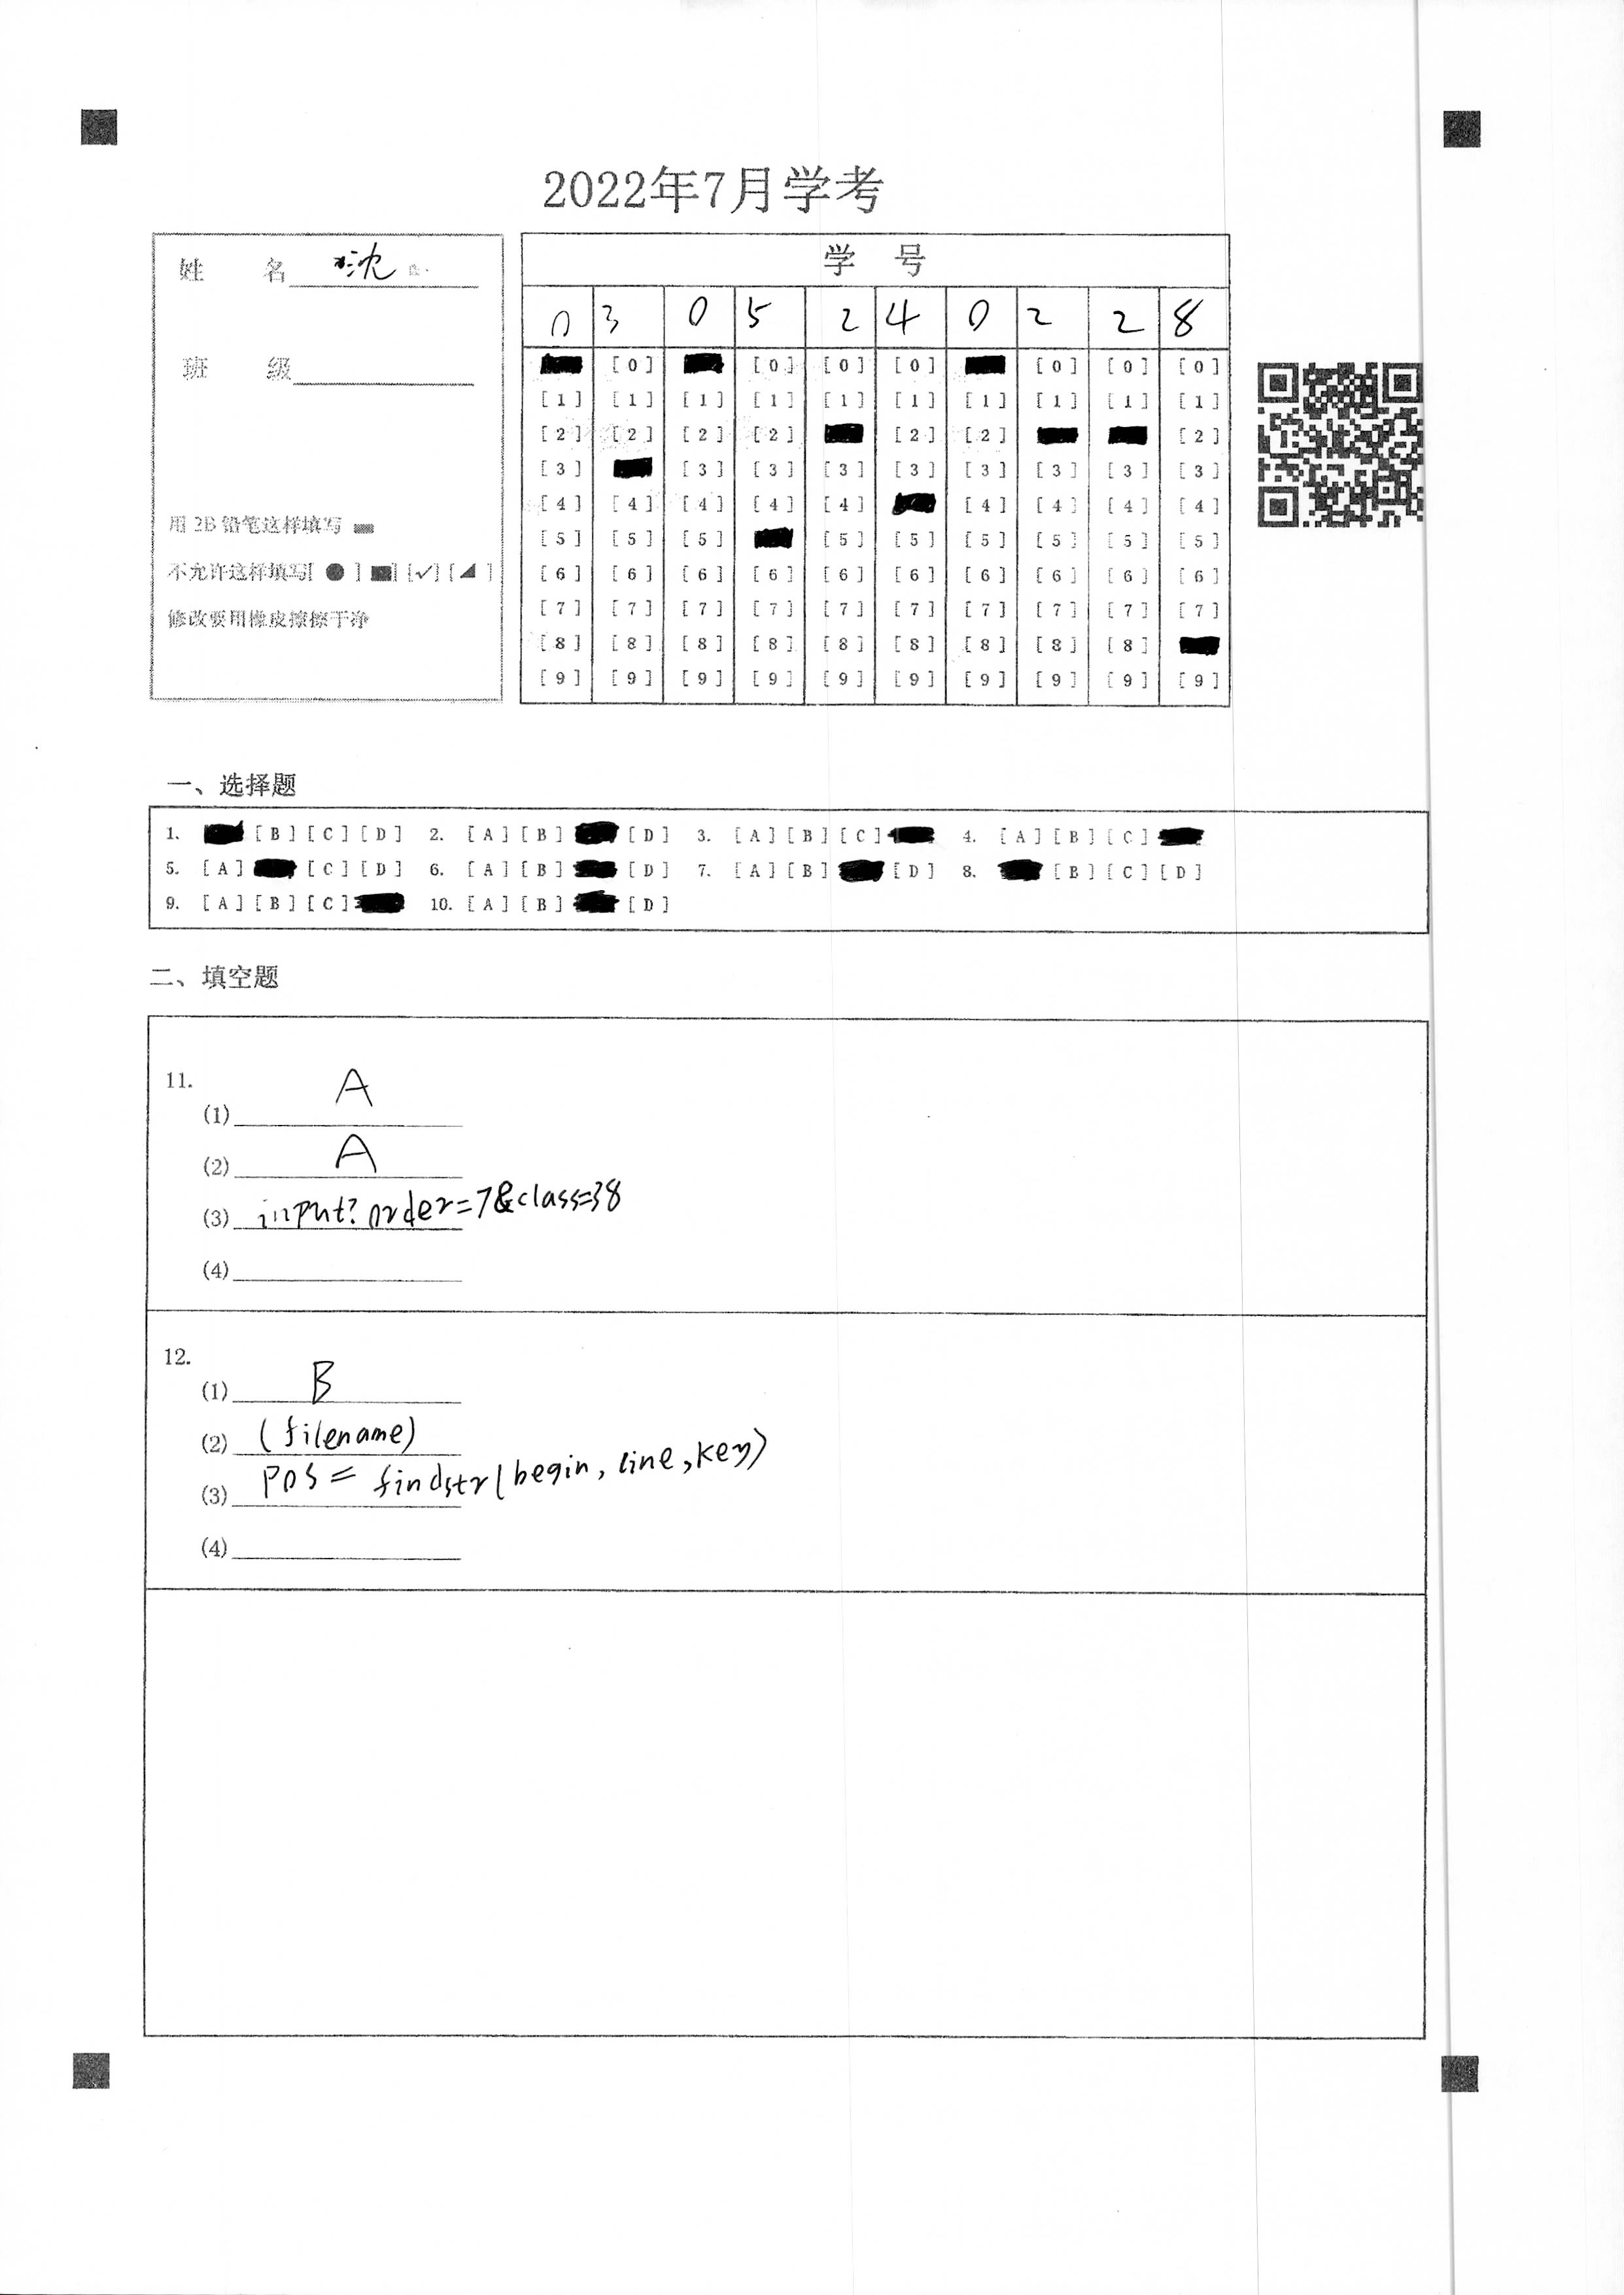 2022年7月学考
姓 名 沈
班 级
用 2B 铅笔这样填写
不允许这样填写[ ● ] [■] [✓] [◢ ]
修改要用橡皮擦擦干净
学 号
0 3 0 5 2 4 0 2 2 8
[0] [0] [0] [0] [0] [0] [0]
[1] [1] [1] [1] [1] [1] [1] [1] [1] [1]
[2] [2] [2] [2] [2] [2] [2]
[3] [3] [3] [3] [3] [3] [3] [3] [3]
[4] [4] [4] [4] [4] [4] [4] [4] [4]
[5] [5] [5] [5] [5] [5] [5] [5] [5]
[6] [6] [6] [6] [6] [6] [6] [6] [6] [6]
[7] [7] [7] [7] [7] [7] [7] [7] [7] [7]
[8] [8] [8] [8] [8] [8] [8] [8] [8]
[9] [9] [9] [9] [9] [9] [9] [9] [9] [9]
一、选择题
1. [B] [C] [D] 2. [A] [B] [D] 3. [A] [B] [C] 4. [A] [B] [C]
5. [A] [C] [D] 6. [A] [B] [D] 7. [A] [B] [D] 8. [B] [C] [D]
9. [A] [B] [C] 10. [A] [B] [D]
二、填空题
11.
(1) A
(2) A
(3) input? order=7&class=38
(4)
12.
(1) B
(2) (filename)
(3) pos = findstr(begin, line, key)
(4)